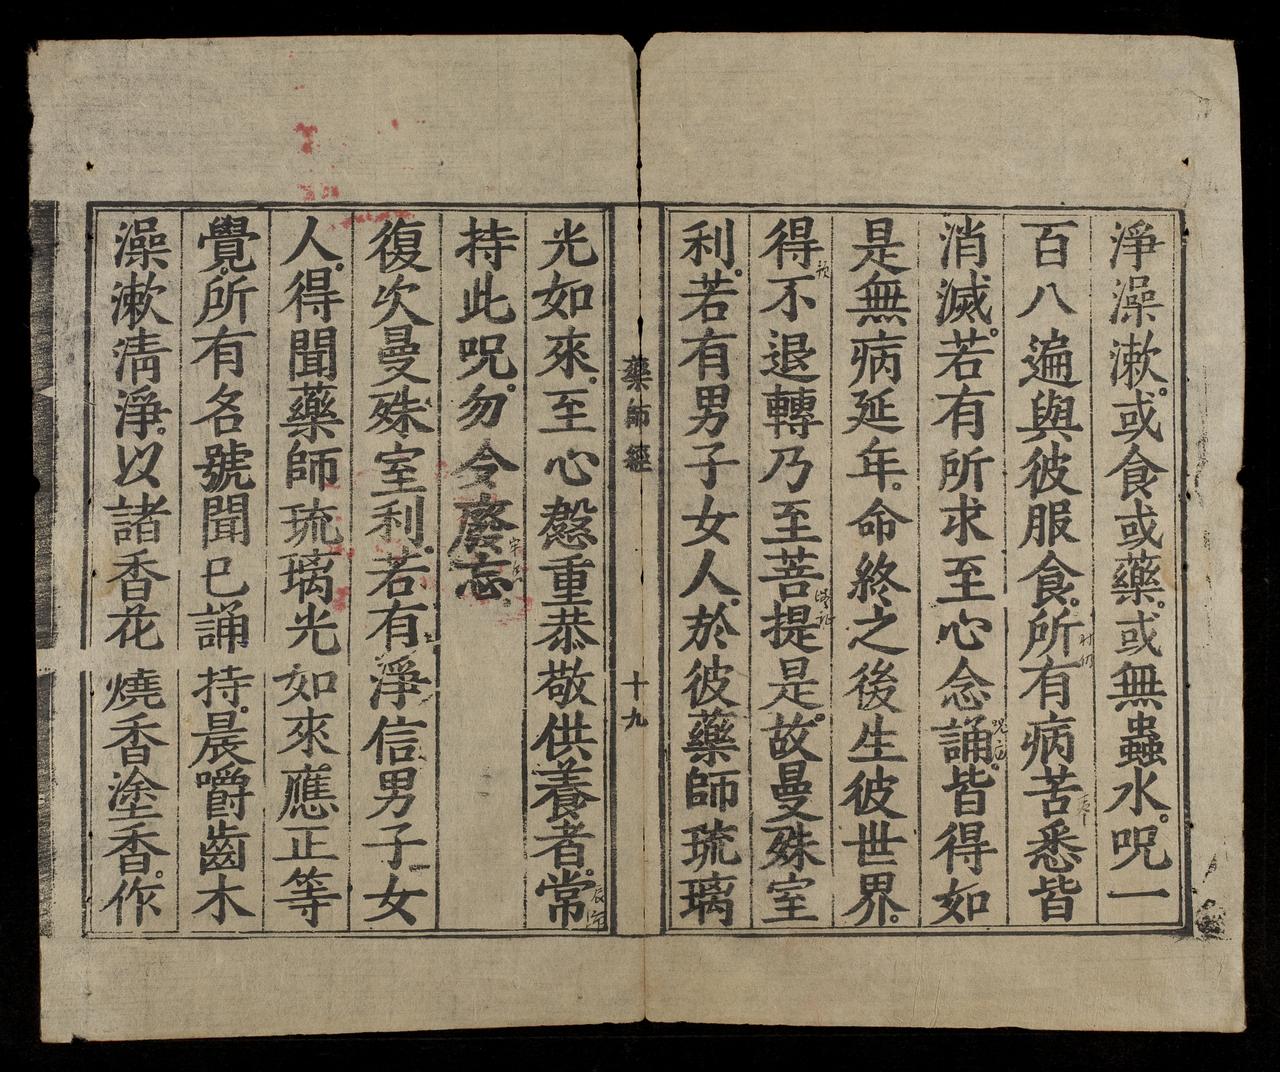 淨澡漱。或食或藥。或無蟲水。呪一
百八遍與彼服食。所有病苦悉皆
消滅。若有所求至心念誦。皆得如
是無病延年。命終之後生彼世界。
得不退轉乃至菩提。是故曼殊室
利。若有男子女人。於彼藥師琉璃
藥師經
十九
光如來。至心慇重恭敬供養者。常
持此呪。勿令廢忘。
復次曼殊室利。若有淨信男子女
人。得聞藥師琉璃光如來應正等
覺。所有名號聞已誦持。晨嚼齒木
澡漱清淨。以諸香花燒香塗香。作